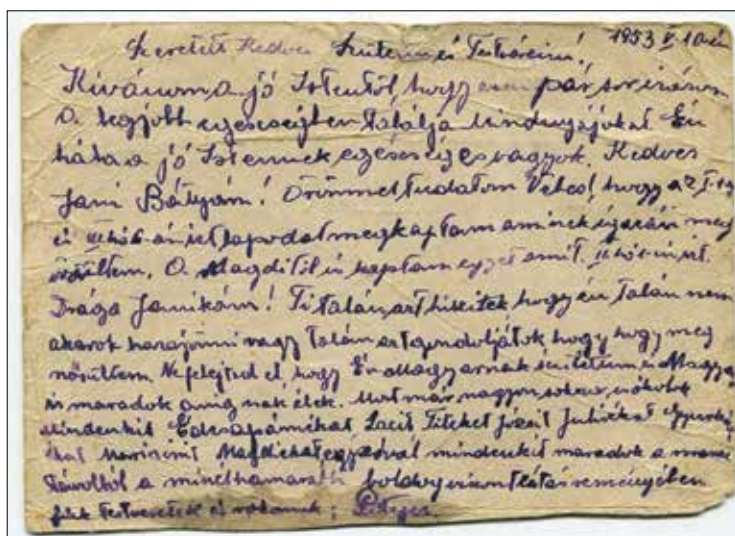 1953 V 10én
Szeretett Kedves Szüleim és Testvéreim!,
Kívánom a jó Istentől, hogy ezen pár sor írásom
a legjobb egésségben találja Mindnyájukat. Én
hála a jó Istennek egésséges vagyok. Kedves
Jani Bátyám! Örömmel tudatom Veled, hogy az I.
és lapodat megkaptam aminek igazán meg
örültem. A Magditól is kaptam egyet amit
Drága Janikám! Ti talán azt hiszitek hogy én talán nem
akarok hazajönni vagy talán azt gondoljátok hogy hogy meg
nősültem. Ne felejtsd el, hogy Én Magyarnak születtem és Magyar
is maradok amíg csak élek. Most már nagyon sokszor csókolok
Mindenkit Édesapámékat Lacit Titeket Józsit Juliskát
Mariskát Magdiékat egyszóval mindenkit maradok a messzi
távolból a minélhamarabbi boldog viszontlátás reményében
fiuk testvéretek és rokonuk;